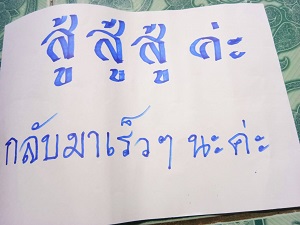 สู้ สู้ สู้ ค่ะ
กลับมาเร็วๆ นะค่ะ